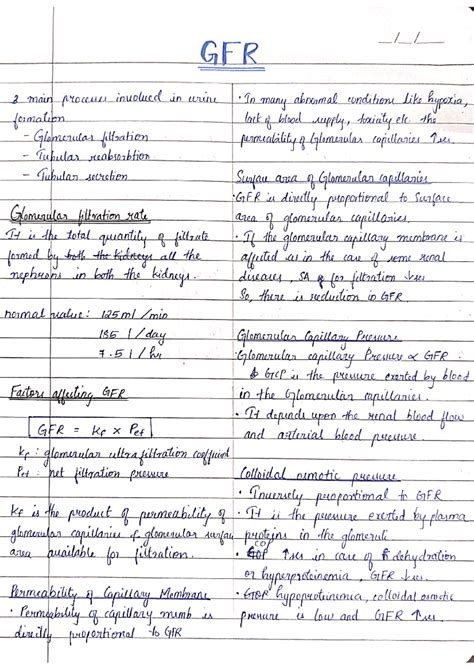 GFR
_/_/_
3 main processes involved in urine
formation
- Glomerular filtration
- Tubular reabsorbtion
- Tubular secretion
Glomerular filtration rate
It is the total quantity of filtrate
formed by both the kidneys all the
nephrons in both the kidneys.
normal value: 125 ml / min
l / day
7.5 l / hr
Factors affecting GFR
GFR = Kf × Pef
Kf : glomerular ultrafiltration coefficient
Pef : net filtration pressure
Kf is the product of permeability of
glomerular capillaries & glomerular surface
area available for filtration.
Permeability of Capillary Membrane
• Permeability of capillary memb is
directly proportional to GFR
• In many abnormal conditions like hypoxia,
lack of blood supply, toxicity etc. the
permeability of Glomerular capillaries ↑ses.
Surface area of Glomerular capillaries
• GFR is directly proportional to Surface
area of glomerular capillaries.
• If the glomerular capillary membrane is
affected as in the case of some renal
diseases, SA for filtration ↓ses
So, there is reduction in GFR.
Glomerular Capillary Pressure
• Glomerular capillary Pressure ∝ GFR
GCP is the pressure exerted by blood
in the Glomerular capillaries.
• It depends upon the renal blood flow
and arterial blood pressure.
Colloidal osmotic pressure
• Inversely proportional to GFR
• It is the pressure exerted by plasma
proteins in the glomeruli
• COP ↑ses in case of dehydration
or hyperproteinemia, GFR ↓ses.
• hypoproteinemia, colloidal osmotic
pressure is low and GFR ↑ses.